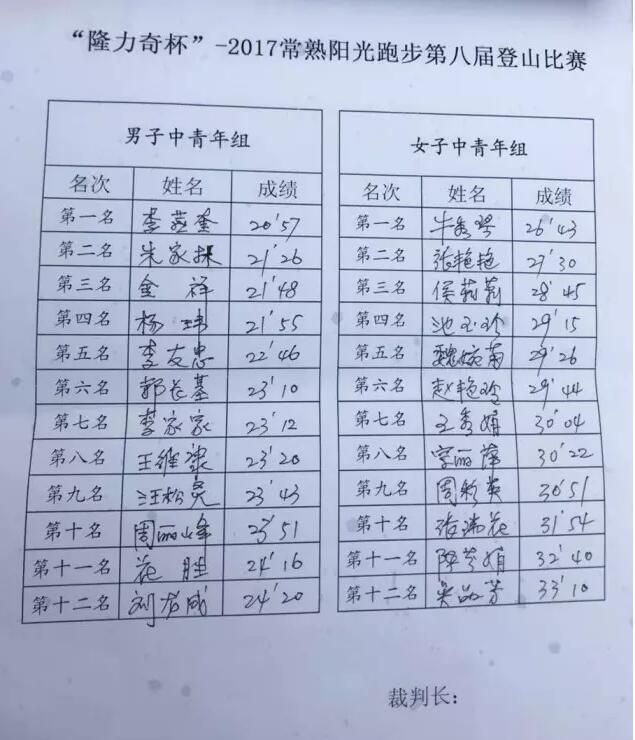 “隆力奇杯”-2017常熟阳光跑步第八届登山比赛
男子中青年组
名次 姓名 成绩
第一名 李燕奎 20'57
第二名 朱家林 21'26
第三名 金祥 21'48
第四名 杨玮 21'55
第五名 李友忠 22'46
第六名 郭长基 23'10
第七名 家家 23'12
第八名 王维 23'20
第九名 汪松亮 23'43
第十名 周丽峰 23'51
第十一名 花胜 24'16
第十二名 刘成 24'20
女子中青年组
名次 姓名 成绩
第一名 牛秀琴 26'43
第二名 张艳艳 27'30
第三名 侯莉莉 28'45
第四名 池玉珍 29'15
第五名 魏婉菊 29'26
第六名 赵艳玲 29'44
第七名 王秀娟 30'04
第八名 丽萍 30'22
第九名 周新英 30'51
第十名 张瑞花 31'54
第十一名 陈芩娟 32'40
第十二名 吴芬 33'10
裁判长：